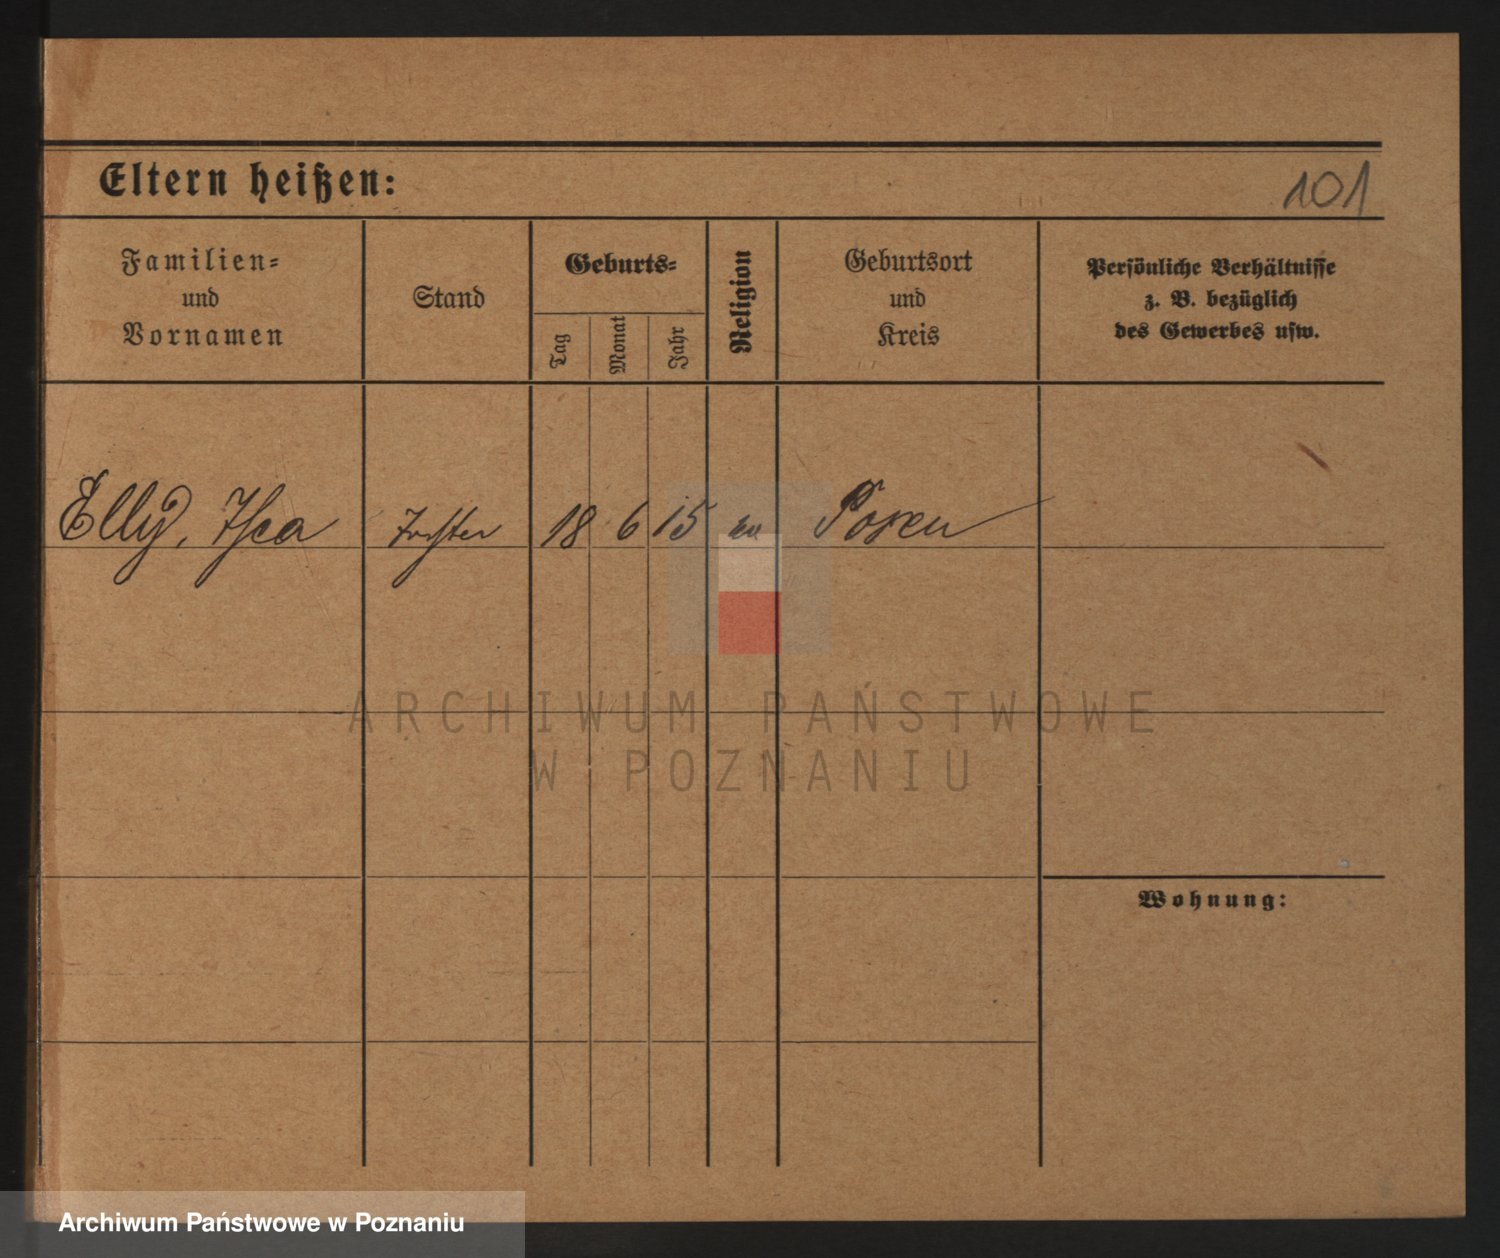 Eltern heißen:
101
Familien=
und
Vornamen
Stand
Geburts=
Tag
Monat
Jahr
Religion
Geburtsort
und
Kreis
Persönliche Verhältnisse
z. B. bezüglich
des Gewerbes usw.
Elly, Thea Tochter 18 6 15 ev Posen
ARCHIWUM PAŃSTWOWE
W POZNANIU
Wohnung:
Archiwum Państwowe w Poznaniu